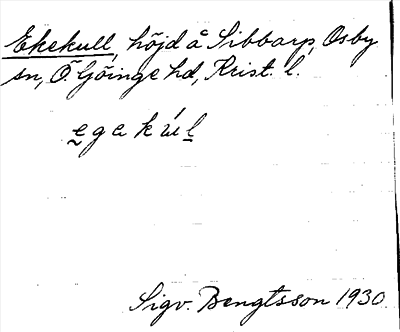 Ekekull, höjd å Sibbarp, Osby
sn, Ö. Göinge hd, Krist. l.
ḛ g a k ú l̲
Sigv. Bengtsson 1930.